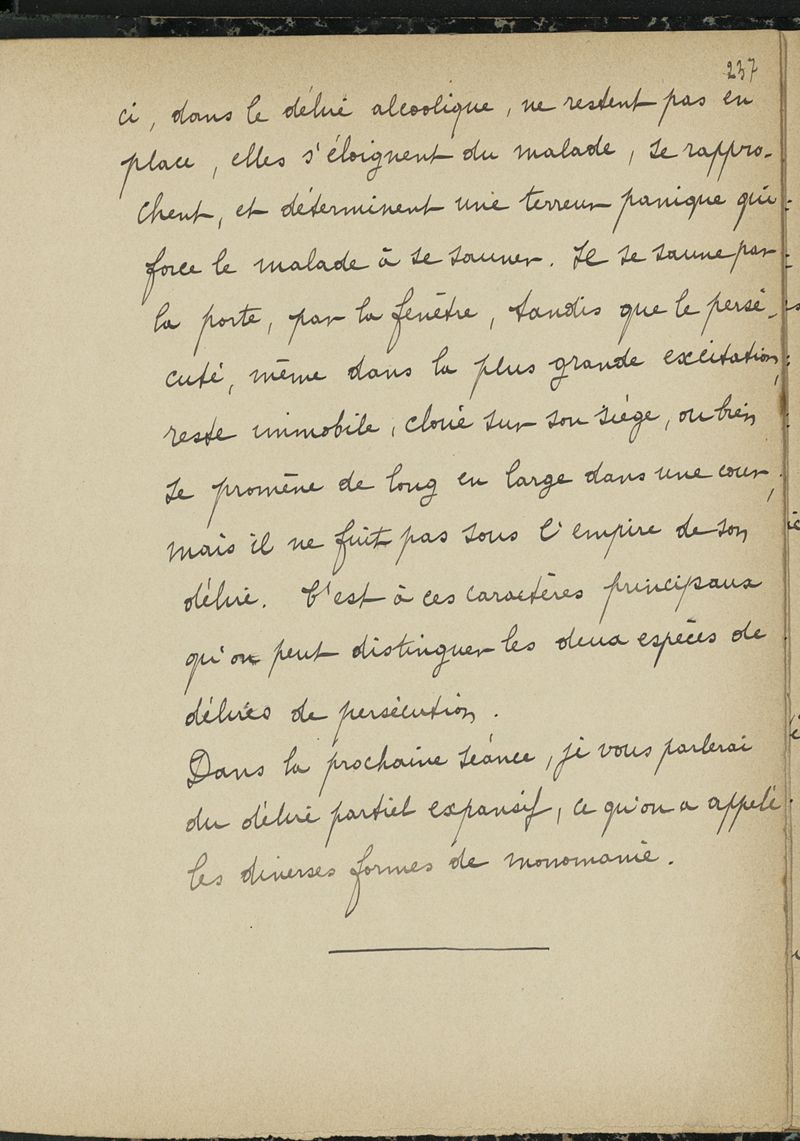 237
ci, dans le délire alcoolique, ne restent pas en
place, elles s'éloignent du malade, se rappro-
chent, et déterminent une terreur panique qui
force le malade à se sauver. Il se sauve par
la porte, par la fenêtre, tandis que le persé-
cuté, même dans la plus grande excitation,
reste immobile, cloué sur son siége, ou bien
se promène de long en large dans une cour,
mais il ne fuit pas sous l'empire de son
délire. C'est à ces caractères principaux
qu'on peut distinguer les deux espèces de
délires de persécution.
Dans la prochaine séance, je vous parlerai
du délire partiel expansif, ce qu'on a appelé
les diverses formes de monomanie.